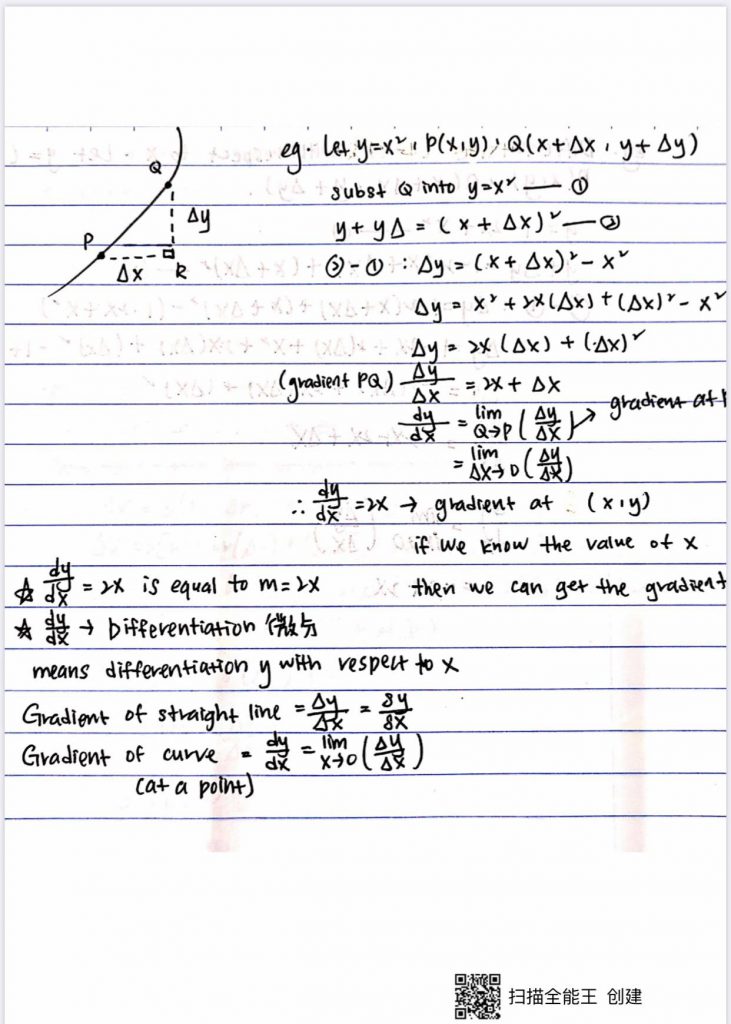 eg. Let y = x², P(x,y), Q(x+Δx, y+Δy)
Q
subst Q into y=x² —— ①
Δy
y + yΔ = (x + Δx)² —— ②
P
Δx
R
② - ① : Δy = (x + Δx)² - x²
Δy = x² + 2x(Δx) + (Δx)² - x²
Δy = 2x(Δx) + (Δx)²
(gradient PQ) Δy/Δx = 2x + Δx
dy/dx = lim Q→P (Δy/Δx) → gradient at
= lim Δx→0 (Δy/Δx)
∴ dy/dx = 2x → gradient at (x,y)
if we know the value of x
☆ dy/dx = 2x is equal to m = 2x then we can get the gradient
☆ dy/dx → Differentiation 微分
means differentiation y with respect to x
Gradient of straight line = Δy/Δx = δy/δx
Gradient of curve = dy/dx = lim x→0 (Δy/Δx)
(at a point)
扫描全能王 创建